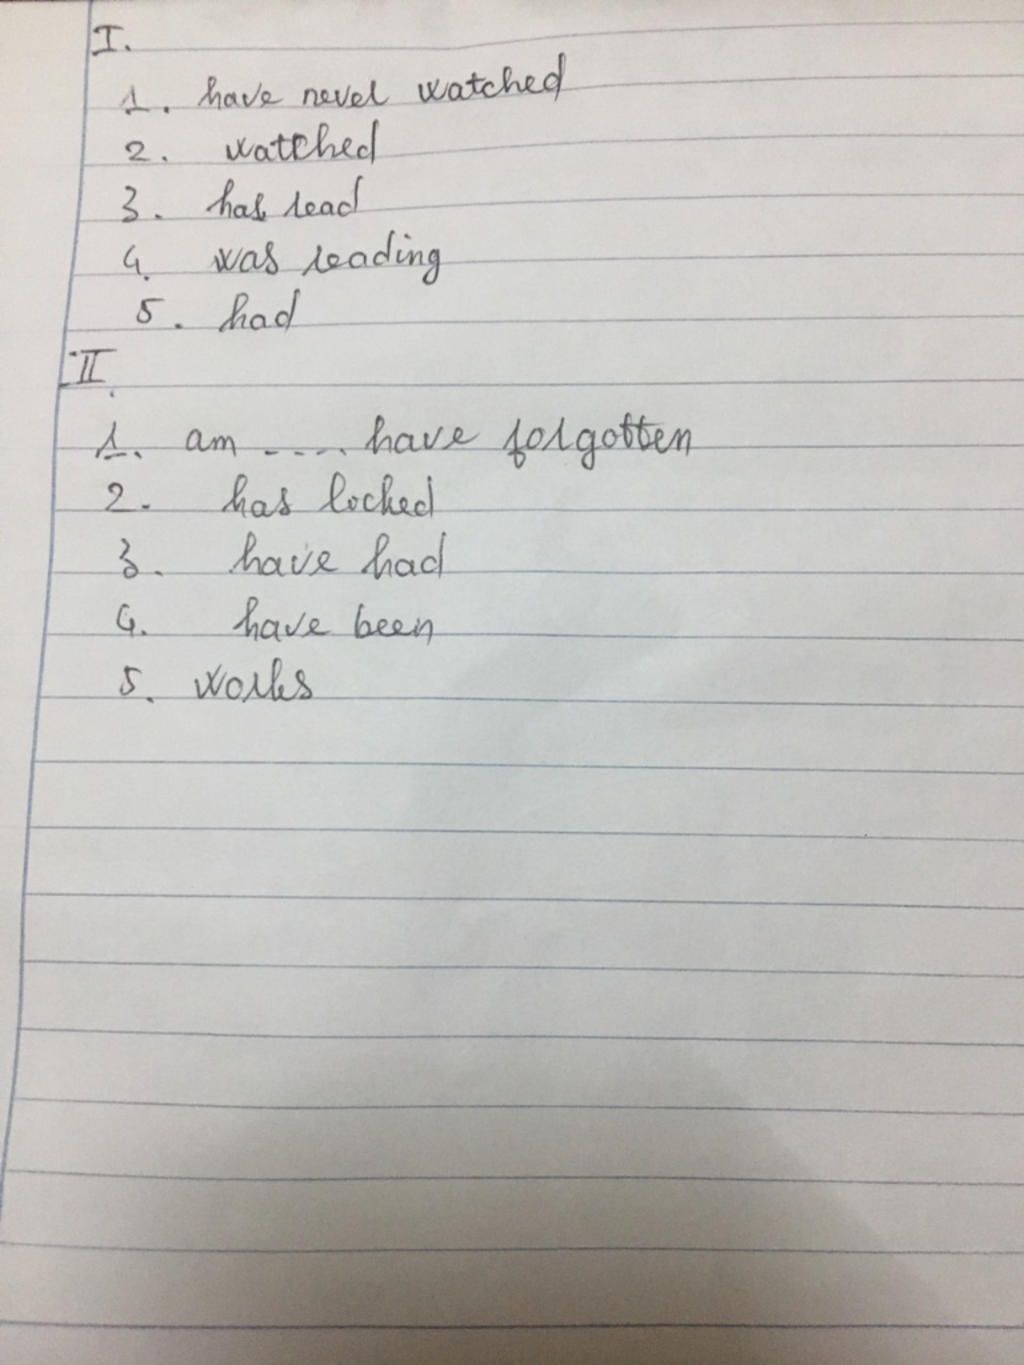 I.
1. have never watched
2. watched
3. has read
4. was reading
5. had
II.
1. am .... have forgotten
2. has locked
3. have had
4. have been
5. works